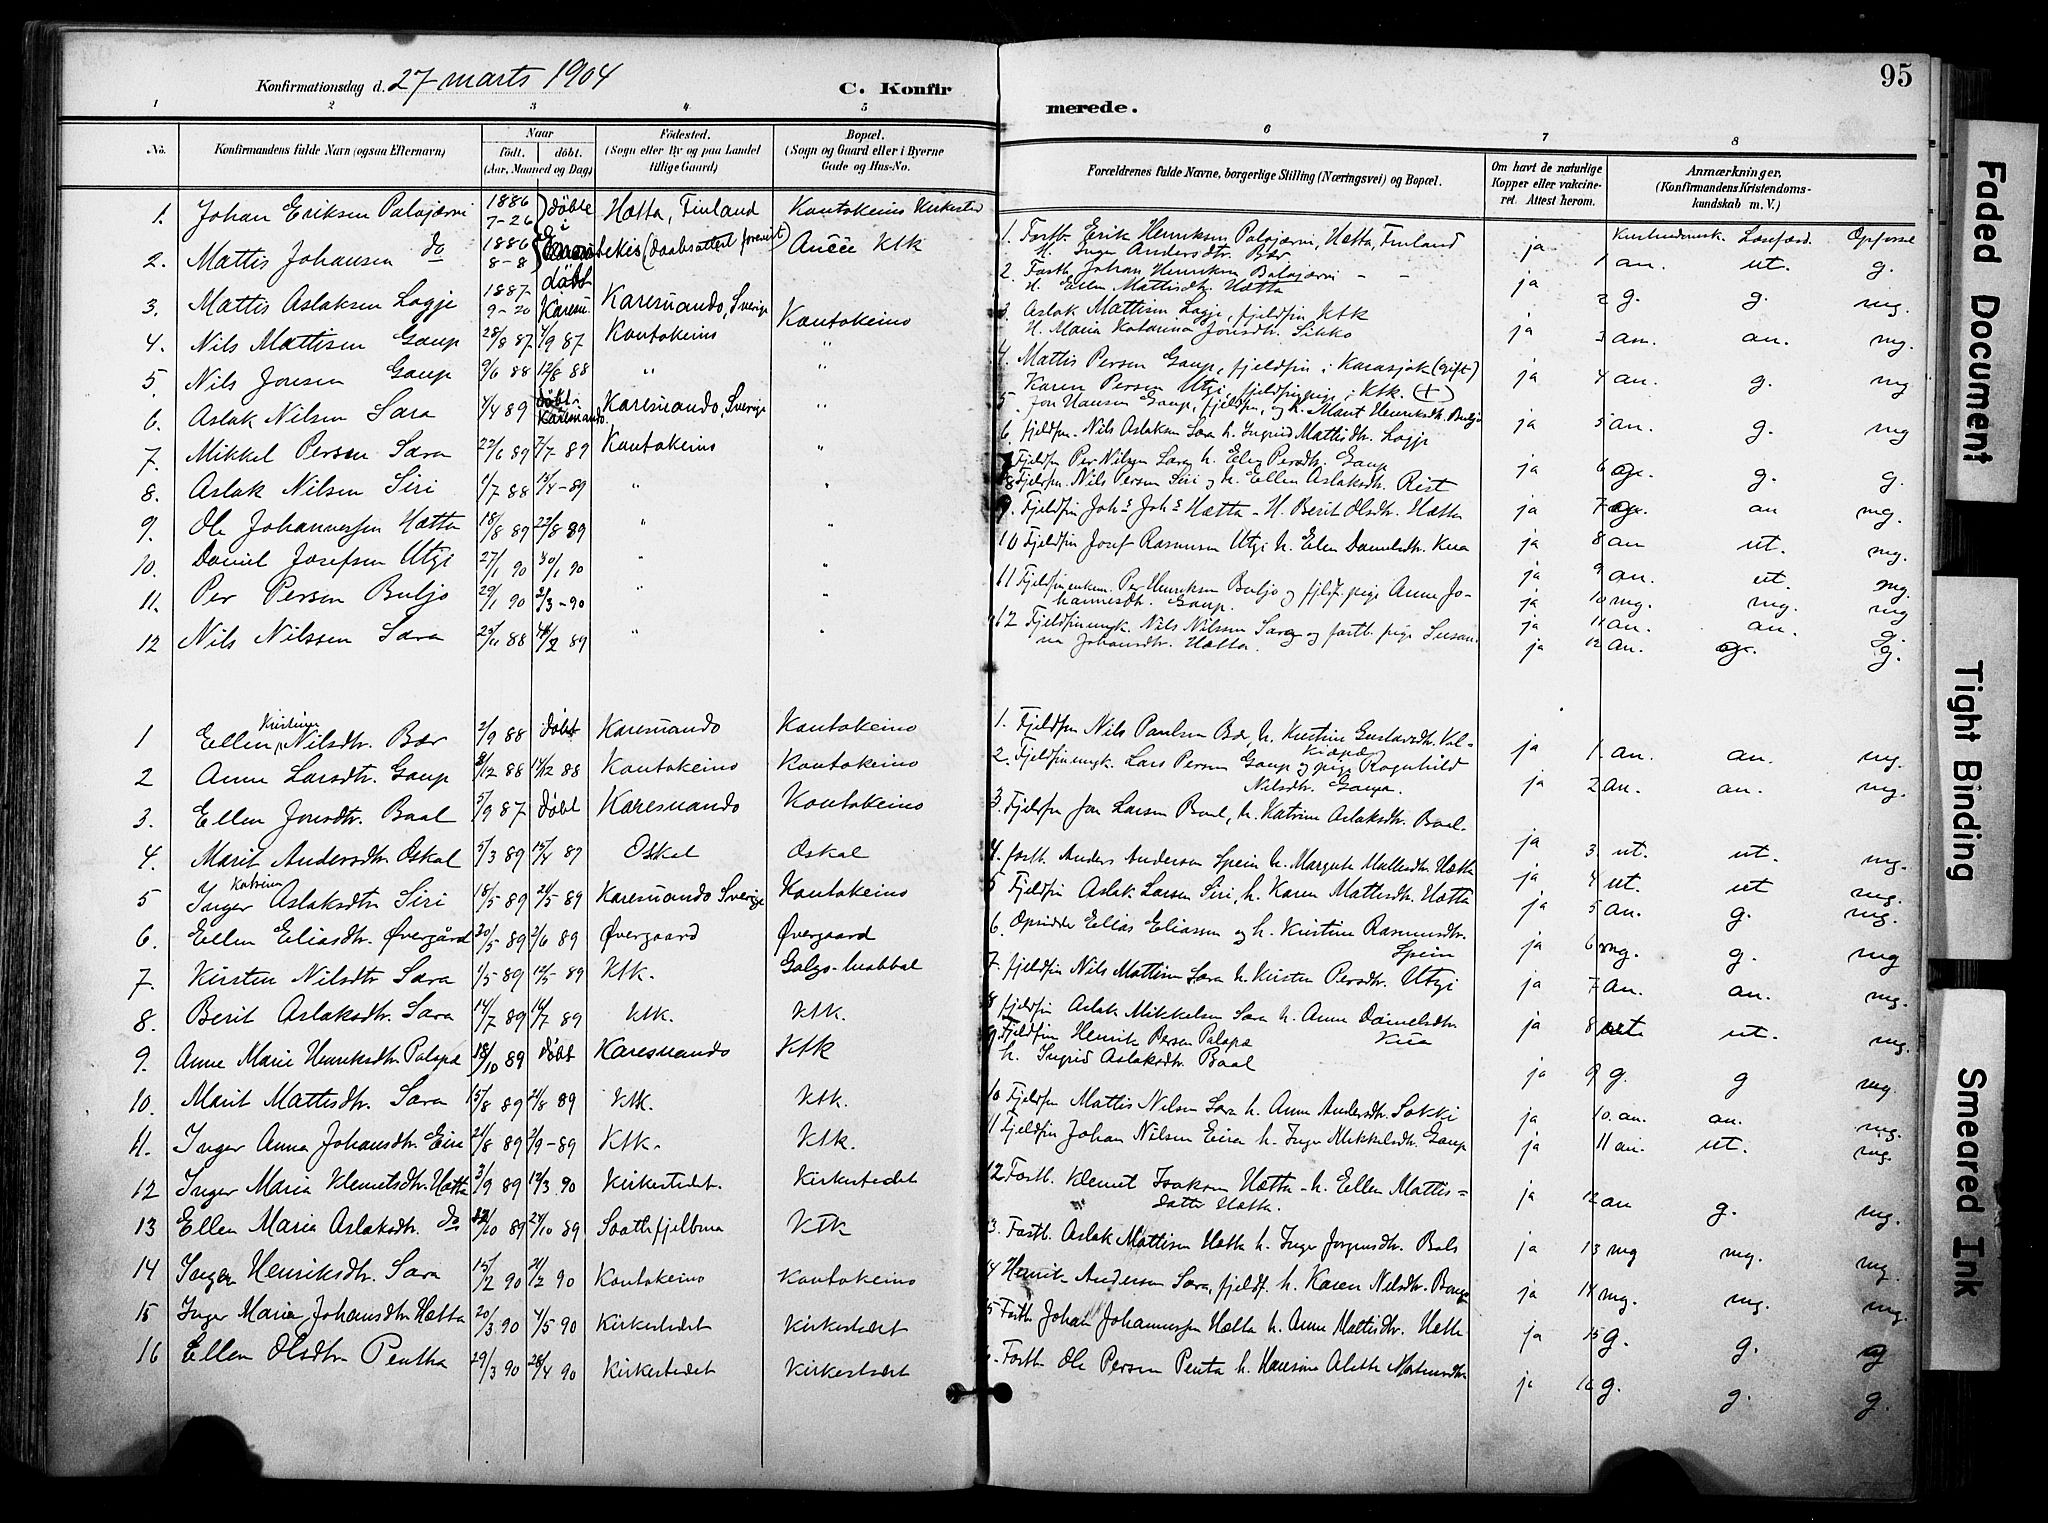 Konfirmationsdag d. 27 marts 1904
C. Konfir
merede.
95
1 2 3 4 5 6 7 8
No.
Konfirmandens fulde Navn (ogsaa Efternavn)
Naar
født. døbt.
(Aar, Maaned og Dag)
Fødested.
(Sogn eller By og paa Landet
tillige Gaard)
Bopæl.
(Sogn og Gaard eller i Byerne
Gade og Hus-No.
Forældrenes fulde Navne, borgerlige Stilling (Næringsvei) og Bopæl.
Om havt de naturlige
Kopper eller vakcine-
ret. Attest herom.
Anmærkninger.
(Konfirmandens Kristendoms-
kundskab m. V.)
1. Johan Eriksen Palojærvi 1886 7-26 døbte Hætta, Finland Kautokeino Kirkested
2. Mattis Johansen do 1886 8-8 (daabsattest forevist) Ktk
3. Mattis Aslaksen Logje 1887 9-20 døbt Karesu. Karesuando, Sverige Kautokeino
4. Nils Mattisen Gaup 28/8 87 4/9 87 Kautokeino "
5. Nils Jonsen Gaup 9/6 88 12/8 88 " "
6. Aslak Nilsen Sara 4/4 89 døbt Karesuando. Karesuando, Sverige "
7. Mikkel Persen Sara 22/6 89 7/7 89 Kautokeino "
8. Aslak Nilsen Siri 1/7 88 -89 " "
9. Ole Johannessen Hætta 18/8 89 /8 89 " "
10. Daniel Josefsen Utsi 27/1 90 30/1 90 "
11. Per Persen Buljo 29/1 90 2/3-90 " "
12 Nils Nilssen Sara 88 89 " "
1 Ellen Kristine Nilsdtr. Bær 2/9 88 døbt Karesuando Kautokeino
2 Anne Larsdtr. Gaup /12 88 /12 88 Kautokeino Kautokeino
3. Ellen Jonsdtr. Baal 5/9 87 døbt Karesuando Kautokeino
4. Marit Andersdtr Oskal 5/3 89 15/4 89 Oskal Oskal
5 Inger Katrina Aslaksdtr Siri 18/5 89 /5 89 Karesuando Sverige Kautokeino
6. Ellen Eliasdtr. Øvergård 20/5 89 2/6 89 Øvergaard Øvergaard
7. Kirsten Nilsdtr Sara 1/5-89 12/5-89 Ktk.
8. Berit Aslaksdtr. Sara 14/7 89 /7 89 Ktk. Ktk.
9. Anne Marie Henriksdtr Palopæ 18/10 89 døbt Karesuando Ktk
10. Marit Mattisdtr. Sara 15/8 89 /8 89 Ktk. Ktk.
11. Inger Anna Johansdtr. Eira /8 89 /9-89 Ktk. Ktk.
12 Inger Maria Klemetsdtr. Hætta 3/9 89 /3 90 Kirkestedet. Kirkestedet
13 Ellen Maria Aslaksdtr. do /10 89 /10 89 Ktk
14 Inger Henriksdtr. Sara 15/2 90 /2 90 Kautokeino Kautokeino
15 Inger Maria Johansdtr Hætta 20/3 90 4/5 90 Kirkestedet Kirkestedet
16 Ellen Olsdtr Pentha 29/3 90 /4 90 Kirkestedet Kirkestedet
1. Fastb. Erik Henriksen Palojærvi, Hætta, Finland
H. Inger Andersdtr. Bær
2. Fastb. Johan Henriksen Palojærvi - -
H. Ellen Mattisdtr. Hætta
3. Aslak Mattisen Logje, fjeldfin Ktk
H. Maria Katarina Jonsdtr. Sikko
4. Mattis Persen Gaup, fjeldfin i Karasjok (gift)
Karen Persen Utsi, fjeldfinpige i Ktk. (+)
5. Jon Hansen Gaup, fjeldfin, og h. Marit Henriksdtr. Buljo
6. fjeldfin. Nils Aslaksen Sara h. Ingrid Mattisdtr. Logje
7 Fjeldfin Per Nilsen Sara h. Elen Persdtr. Gaup
8 Fjeldfin. Nils Persen Siri og h. Ellen Aslaksdtr. Rist
9. Fjeldfin Johs Johs Hætta - H. Berit Olsdtr. Hætta
10 Fjeldfin Josef Rasmusen Utsi h. Elen Danielsdtr. Kua
11 Fjeldfinenkem. Per Henriksen Buljo og fjeldf.pige Anne Jo-
hannesdtr. Gaup.
12 Fjeldfinungk. Nils Nilsen Sara og fastb. pige Susan-
na Johansdtr. Hætta.
1. Fjeldfin Nils Paulsen Bær, h. Kristine Gustavsdtr. Val-
kiapæ
2. Fjeldfinungk. Lars Persen Gaup og pige Ragnhild
Nilsdtr. Gaup.
3. Fjeldfin Jon Larsen Baal, h. Katrine Aslaksdtr. Baal.
4. fastb. Anders Andersen Spein h. Margrete Hætta
5 Fjeldfin Aslak Larsen Siri, h. Karen Mattisdtr. Hætta
6. Opsidder Ellias Eliassen og h. Kristine Rasmusdtr.
Spein
7. fjeldfin Nils Mattisen Sara h. Kirsten Persdtr. Utsi
8 fjeldfin Aslak Mikkelsen Sara h. Anne Danielsdtr.
Kua
9 Fjeldfin Henrik Persen Palopæ
h. Ingrid Aslaksdtr. Baal
10 Fjeldfin Mattis Nilsen Sara h. Anne Andersdtr. Sokki
11 Fjeldfin Johan Nilsen Eira h. Inger Mikkelsdtr. Gaup
12 Fastb. Klemet Isaksen Hætta - h. Ellen Mattis=
datter Hætta.
13. Fastb. Aslak Mattisen Hætta h. Inger Jørgensdtr. Bals
14 Henrik Andersen Sara, fjeldf. h. Karen Nilsdtr.
15 Fastb. Johan Johannessen Hætta h. Anne Mattisdtr. Hætta
Fastb. Ole Persen Penta h. Hansine
Kristendomsk. Læsefærd. Opførsel
ja 1 an. ut. g.
ja 2 g. g. mg.
ja 3 an. an. mg.
ja 4 an. g. mg
ja 5 an. g. mg
ja 6 g. g. g.
ja 7 g. an mg.
ja 8 an ut. mg.
ja 9 an. ut. mg.
ja 10 mg. mg. mg
ja 11 an. an. g.
ja 12 an. g. g.
ja 1. an. an. mg.
ja 2 an. an. mg.
ja 3. ut. ut. mg.
ja 4 ut. ut mg.
ja 5 an. g. mg.
ja 6 mg. g. mg
ja 7 an. an. mg.
ja 8 ut ut. mg.
ja 9 g. g mg.
ja 10. an. an. mg.
ja 11 an. ut. mg.
ja 12 an g. mg.
ja 13 mg mg. mg.
ja 14 mg. mg. mg.
ja 15 g. g. g
ja 16 g. g. g.
Faded Document
Tight Binding
Smeared Ink